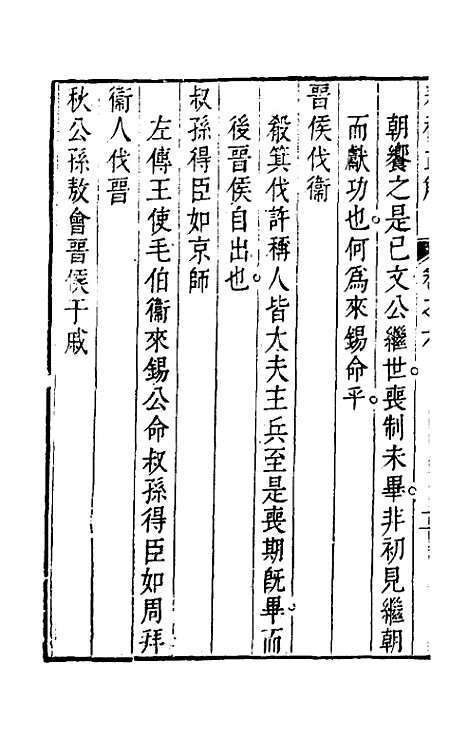 朝饗之是已文公繼世。喪制未畢。非初見繼朝
而獻功也。何爲來錫命乎。
晉侯伐衞
殽箕伐許稱人皆大夫主兵至是喪期既畢。而
後晉侯自出也。
叔孫得臣如京師
左傳王使毛伯衞來錫公命叔孫得臣如周拜
衞人伐晉
秋公孫敖會晉侯于戚